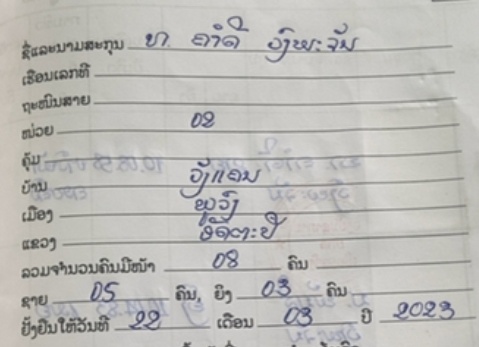 ຊື່ແລະນາມສະກຸນ ທ. ຄຳດີ ວົງພະຈັນ
ເຮືອນເລກທີ
ຖະໜົນສາຍ
ໜ່ວຍ 02
ຄຸ້ມ
ບ້ານ ວັງແຄນ
ເມືອງ ພູວົງ
ແຂວງ ອັດຕະປື
ລວມຈຳນວນຄົນມີໜ້າ 08 ຄົນ
ຊາຍ 05 ຄົນ, ຍິງ 03 ຄົນ
ຢັ້ງຢືນໃຫ້ວັນທີ 22 ເດືອນ 03 ປີ 2023